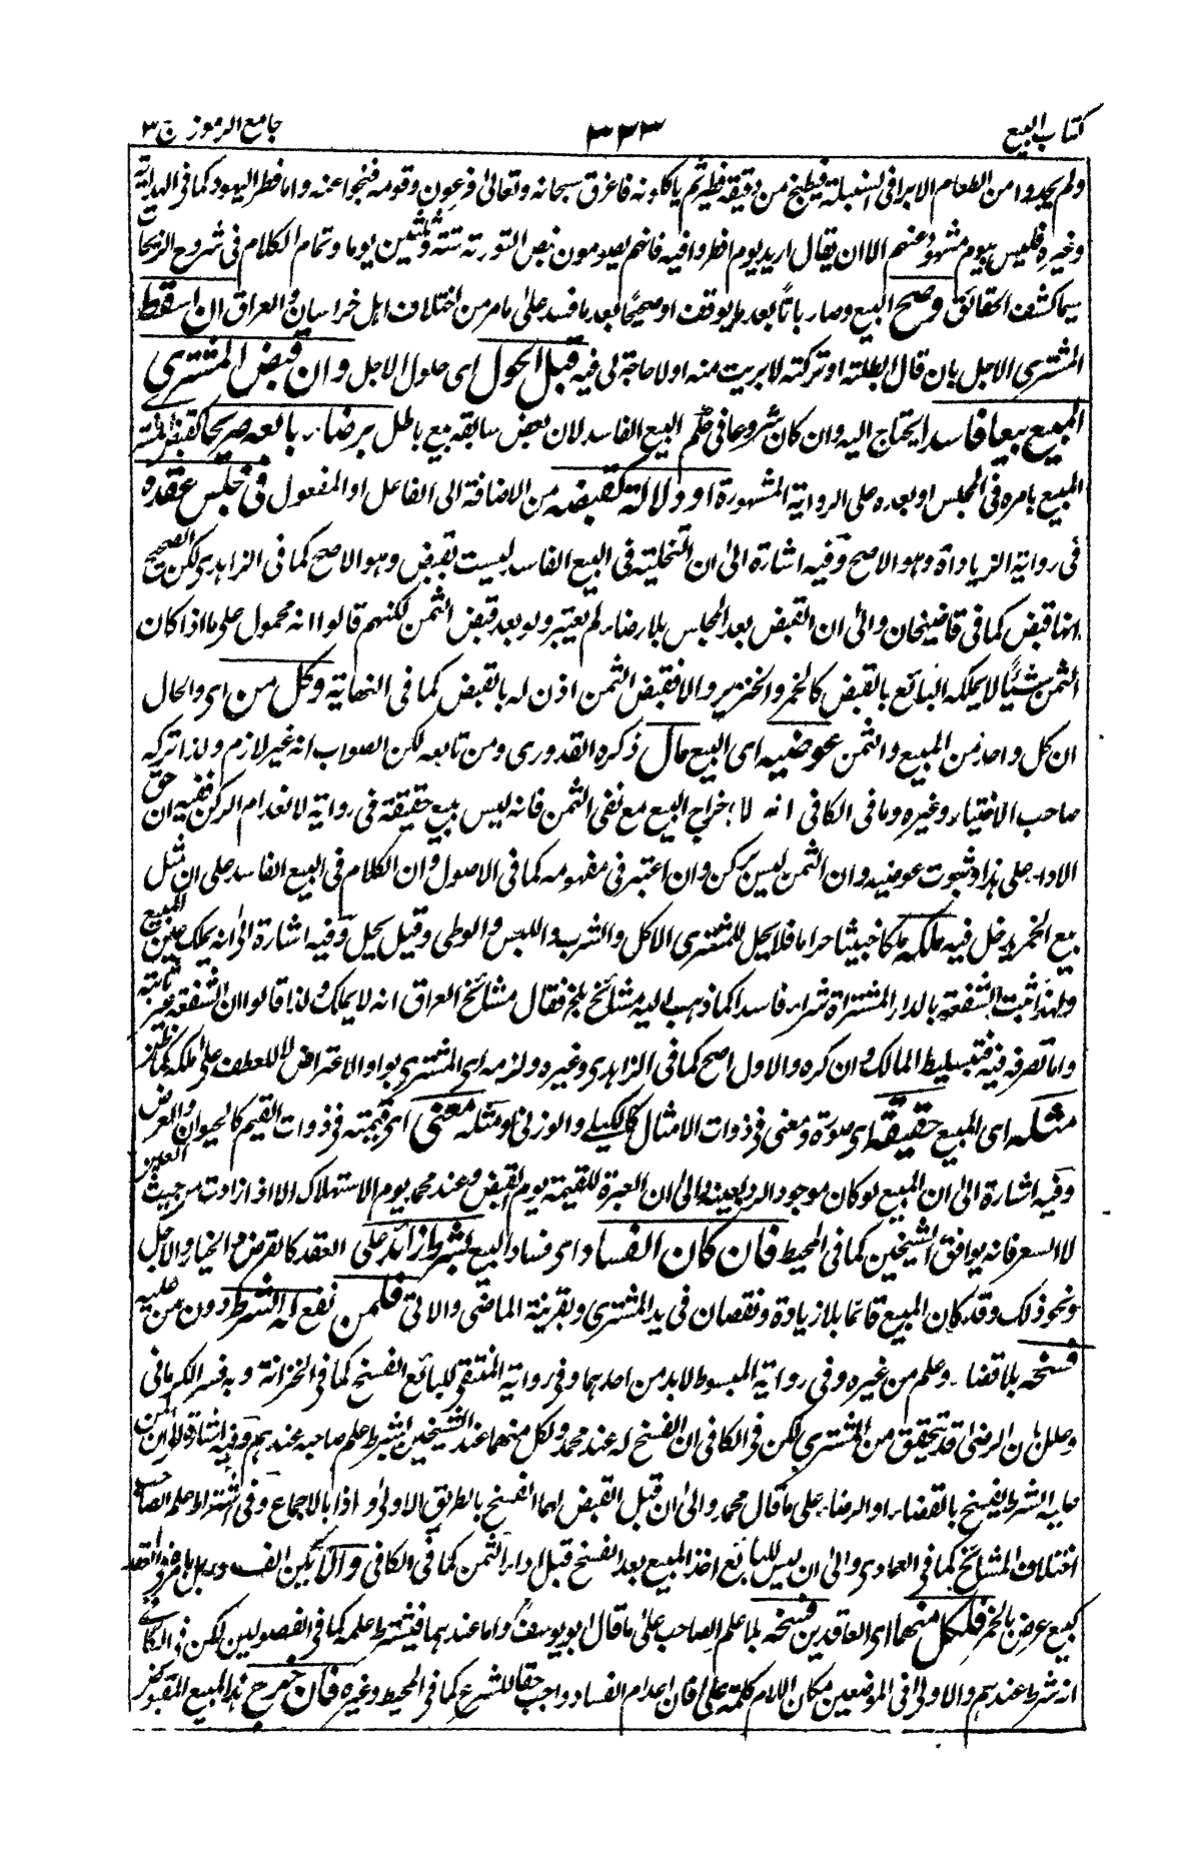 كتاب البيع
٣٢٣
جامع الرموز ج ٣
ولم يجدوا من الطعام الا برا فى السنبلة فيطبخ من دقيقة فطير ثم ياكلونه فاغرق سبحانه وتعالى فرعون وقومه فنجوا عنه واما فطر اليهود كما فى الهداية
وغيره فليس بيوم مشهود عنهم الا ان يقال اريد يوم افطروا فيه فانهم يصومون بنص التورته ستة يوما وتمام الكلام فى شروح الزيجات
سيما كشف الحقائق وصح البيع وصار باتا بعد ما يوقف او صحيحا بعد ما فسد على ما مر من اختلاف اهل خراسان والعراق ان اسقط
المشترى الاجل بان قال ابطلته او تركته لا بريت منه او لا حاجة لى فيه قبل الحلول اى حلول الاجل وان قبض المشترى
المبيع بيعا فاسدا يحتاج اليه وان كان شروعا فى حكم البيع الفاسد لان بعض سابقه بيع باطل برضاء بائعه صريحا كقبض المشترى
المبيع بامره فى المجلس او بعده على الرواية المشهورة او دلالة كقبضه من الاضافة الى الفاعل او المفعول فى مجلس عقده
فى رواية الزيادات وهو الاصح وفيه اشارة الى ان التخلية فى البيع الفاسد ليست بقبض وهو الاصح كما فى الزاهدى لكن الصحيح
انها قبض كما فى قاضيخان والى ان القبض بعد المجلس بلا رضاء لم يعتبر ولو بعد قبض الثمن لكنهم قالوا انه محمول على ما اذا كان
الثمن شيئا لا يملكه البائع بالقبض كالخمر والخنزير والا فقبض الثمن اذن له بالقبض كما فى النهاية وكل من اى والحال
ان كل واحد من المبيع والثمن عوضيه اى البيع مال ذكره القدورى ومن تابعه لكن الصواب انه غير لازم ولذا تركه
صاحب الاختيار وغيره وما فى الكافى انه لاخراج البيع مع نفى الثمن فانه ليس ببيع حقيقة فى رواية لانعدام الركن ففيه ان حق
الاداء على هذا وثبوت عوضيه وان الثمن ليس بركن وان اعتبر فى مفهومه كما فى الاصول وان الكلام فى البيع الفاسد على ان مثل
بيع الخمر يدخل فيه ملكه ملكا خبيثا حراما فلا يحل للمشترى الاكل والشرب واللبس والوطى وقيل يحل وفيه اشارة الى انه يملك عين المبيع
ولهذا تثبت الشفعة بالدار المشتراة شراء فاسدا كما ذهب اليه مشائخ بلخ فقال مشائخ العراق انه لا يملك ولذا قالوا ان الشفعة غير ثابتة
واما تصرفه فيه فتسليط المالك وان كره والاول اصح كما فى الزاهدى وغيره ولزمه اى المشترى بواو الاعتراض للعطف على ملكه كما ظن
مثله اى المبيع حقيقة اى صورة ومعنى فى ذوات الامثال كالكيلى والوزنى او مثله معنى اى قيمته فى ذوات القيم كالحيوان والعرض
وفيه اشارة الى ان المبيع لو كان موجودا لرد بعينه والى ان العبرة للقيمة يوم القبض وعند محمد يوم الاستهلاك الا اذا زادت من حيث العين
لا السعر فانه يوافق الشيخين كما فى المحيط فان كان الفساد اى فساد البيع بشرط زائد على العقد كالقرض والخيار والاجل
ونحو ذلك وقد كان المبيع قائما بلا زيادة ونقصان فى يد المشترى وبقرينة الماضى والاتى فلمن نفع له الشرط دون من عليه
فسخه بلا قضاء وعلم من غيره وفى رواية المبسوط لا بد من احدهما وفى رواية المنتقى للبائع الفسخ كما فى الخزانة وبه فسر الكرمانى
وعلل بان الرضى قد تحقق من المشترى لكن فى الكافى ان الفسخ له عند محمد ولكل منهما عند الشيخين بشرط علم صاحبه عندهم وفيه اشارة الى ان من
عليه الشرط لفسخ بالقضاء او الرضاء على ما قال محمد والى ان قبل القبض لهما الفسخ بالطريق الاولى واذا بالاجماع وفى اشتراط علم الصاحب
اختلاف المشائخ كما فى العمادى والى ان ليس للبائع اخذ المبيع بعد الفسخ قبل اداء الثمن كما فى الكافى والا يكن الفساد بل
كبيع عرض بالخمر فلكل منهما اى العاقدين فسخه بلا علم الصاحب على ما قال ابو يوسف واما عندهما فيشترط علمه كما فى الفصولين لكن فى الكافى
انه شرط عندهم والاولى فى الموضعين مكان اللام كلمة على فان اعدام الفساد واجب حقا للشرع كما فى المحيط وغيره فان خرج هذا المبيع المقبوض